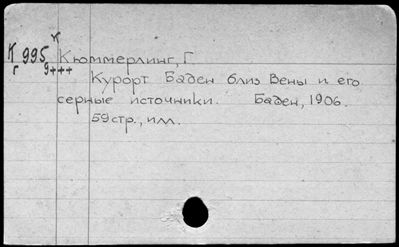 К 995 Кюммерлинг, Г.
г 9+++
Курорт Баден близ Вены и его
серные источники. Баден, 1906.
59 стр., илл.